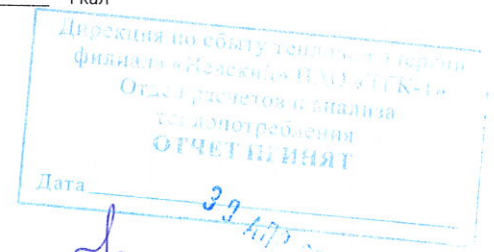 Гкал
Дирекция по сбыту тепловой энергии
филиала «Невский» ПАО «ТГК-1»
Отдел расчетов и анализа
теплопотребления
ОТЧЕТ ПРИНЯТ
Дата